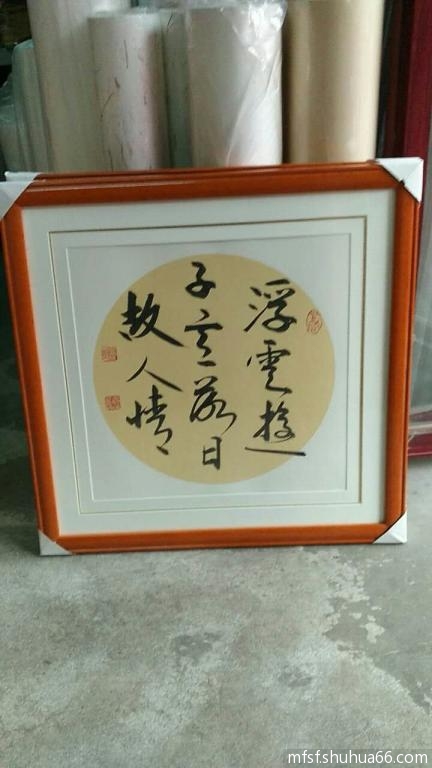 浮云游
子意落日
故人情
mfsfshuhua66.com